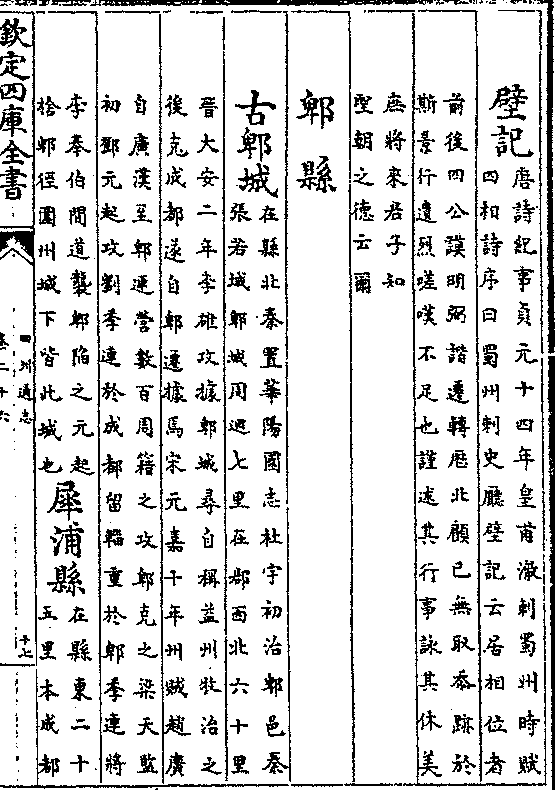 壁記
唐詩紀事貞元十四年皇甫澈刺蜀州時賦
四相詩序曰蜀州刺史廳壁記云居相位者
前後四公謨明弼諧遷轉厯此顧己無取忝跡於
斯景行遺烈嗟嘆不足也謹述其行事詠其休美
庶將來君子知
聖朝之德云爾
郫縣
古郫城
在縣北秦置華陽國志杜宇初治郫邑秦
張若城郫城周迴七里在郡西北六十里
晉大安二年李雄攻據郫城尋自稱益州牧治之
後克成都遂自郫遷據焉宋元嘉十年州賊趙廣
自廣漢至郫連營數百周籍之攻郫克之梁天監
初鄧元起攻劉季連於成都留輜重於郫季連將
李奉伯間道襲郫陷之元起
捨郫徑圍州城下皆此城也
犀浦縣
在縣東二十
五里本成都
欽定四庫全書
四川通志
卷二十六
十七